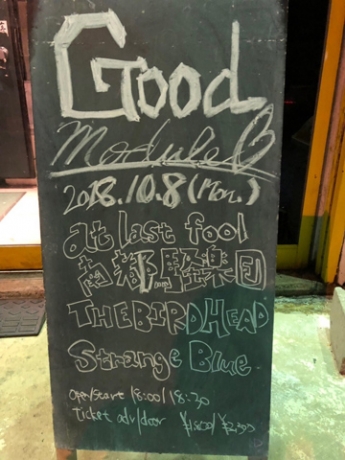 Good
Module B
2018.10.8 (Mon.)
at last fool
楽団
THE BIRD HEAD
Strange Blue.
Open/Start 18:00/18:30
Ticket adv/door